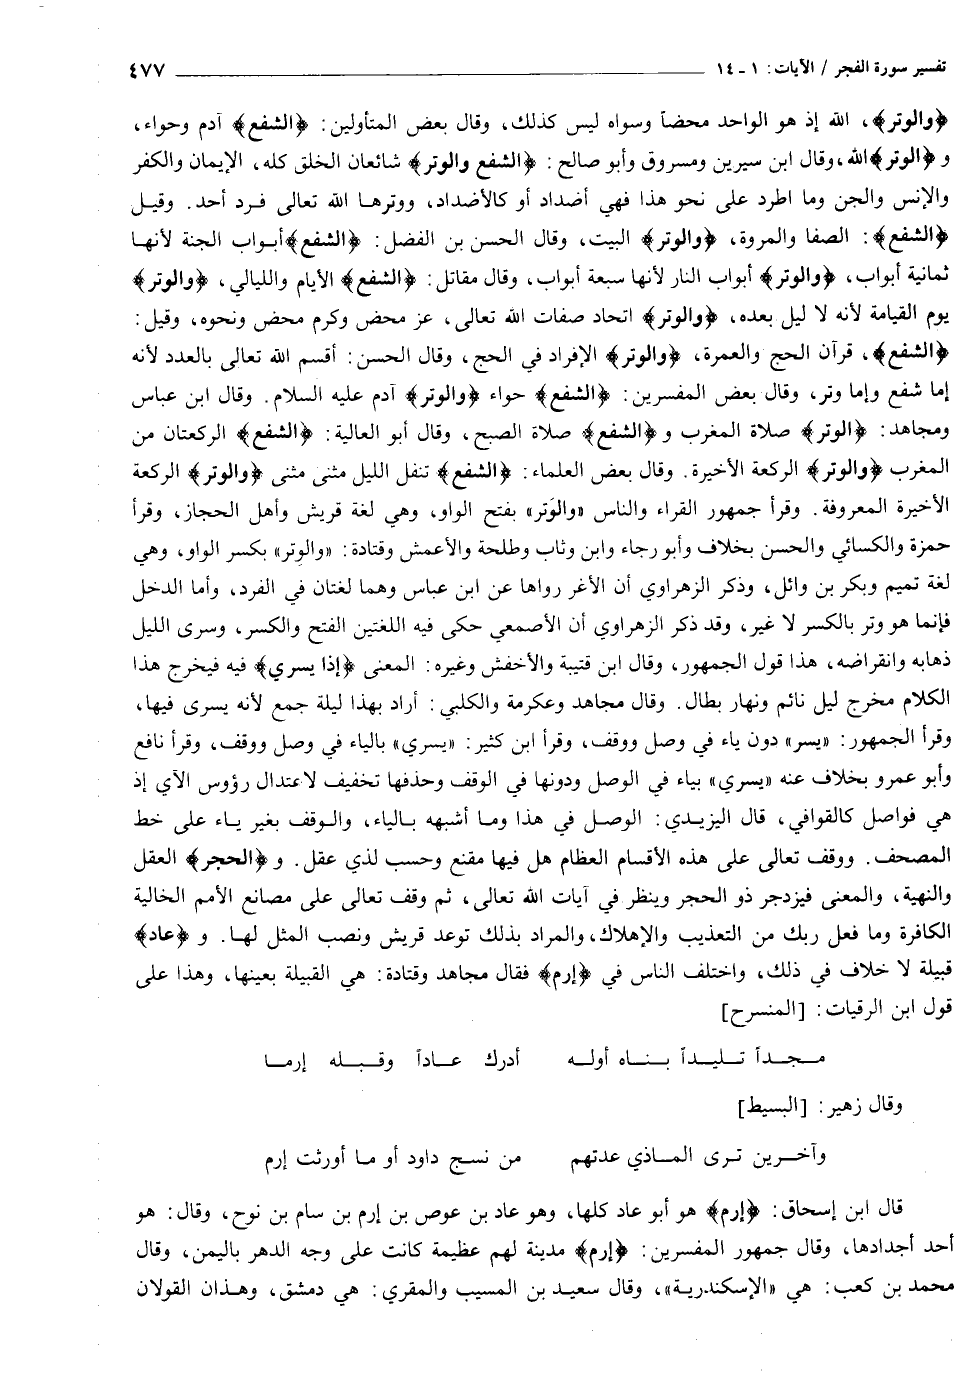 تفسير سورة الفجر / الآيات: ١ - ١٤ ٤٧٧
﴿والوتر﴾، الله إذ هو الواحد محضاً وسواه ليس كذلك، وقال بعض المتأولين: ﴿الشفع﴾ آدم وحواء،
و﴿الوتر﴾ الله، وقال ابن سيرين ومسروق وأبو صالح: ﴿الشفع والوتر﴾ شائعان الخلق كله، الإيمان والكفر
والإنس والجن وما اطرد على نحو هذا فهي أضداد أو كالأضداد، ووترها الله تعالى فرد أحد. وقيل
﴿الشفع﴾: الصفا والمروة، ﴿والوتر﴾ البيت، وقال الحسن بن الفضل: ﴿الشفع﴾ أبواب الجنة لأنها
ثمانية أبواب، ﴿والوتر﴾ أبواب النار لأنها سبعة أبواب، وقال مقاتل: ﴿الشفع﴾ الأيام والليالي، ﴿والوتر﴾
يوم القيامة لأنه لا ليل بعده، ﴿والوتر﴾ اتحاد صفات الله تعالى، عز محض وكرم محض ونحوه، وقيل:
﴿الشفع﴾، قرآن الحج والعمرة، ﴿والوتر﴾ الإفراد في الحج، وقال الحسن: أقسم الله تعالى بالعدد لأنه
إما شفع وإما وتر، وقال بعض المفسرين: ﴿الشفع﴾ حواء ﴿والوتر﴾ آدم عليه السلام. وقال ابن عباس
ومجاهد: ﴿الوتر﴾ صلاة المغرب و﴿الشفع﴾ صلاة الصبح، وقال أبو العالية: ﴿الشفع﴾ الركعتان من
المغرب ﴿والوتر﴾ الركعة الأخيرة. وقال بعض العلماء: ﴿الشفع﴾ تنفل الليل مثنى مثنى ﴿والوتر﴾ الركعة
الأخيرة المعروفة. وقرأ جمهور القراء والناس «والوَتر» بفتح الواو، وهي لغة قريش وأهل الحجاز، وقرأ
حمزة والكسائي والحسن بخلاف وأبو رجاء وابن وثاب وطلحة والأعمش وقتادة: «والوِتر» بكسر الواو، وهي
لغة تميم وبكر بن وائل، وذكر الزهراوي أن الأغر رواها عن ابن عباس وهما لغتان في الفرد، وأما الدخل
فإنما هو وتر بالكسر لا غير، وقد ذكر الزهراوي أن الأصمعي حكى فيه اللغتين الفتح والكسر، وسرى الليل
ذهابه وانقراضه، هذا قول الجمهور، وقال ابن قتيبة والأخفش وغيره: المعنى ﴿إذا يسري﴾ فيه فيخرج هذا
الكلام مخرج ليل نائم ونهار بطال. وقال مجاهد وعكرمة والكلبي: أراد بهذا ليلة جمع لأنه يسرى فيها،
وقرأ الجمهور: «يسر» دون ياء في وصل ووقف، وقرأ ابن كثير: «يسري» بالياء في وصل ووقف، وقرأ نافع
وأبو عمرو بخلاف عنه «يسري» بياء في الوصل ودونها في الوقف وحذفها تخفيف لاعتدال رؤوس الآي إذ
هي فواصل كالقوافي، قال اليزيدي: الوصل في هذا وما أشبهه بالياء، والوقف بغير ياء على خط
المصحف. ووقف تعالى على هذه الأقسام العظام هل فيها مقنع وحسب لذي عقل. و﴿الحجر﴾ العقل
والنهية، والمعنى فيزدجر ذو الحجر وينظر في آيات الله تعالى، ثم وقف تعالى على مصانع الأمم الخالية
الكافرة وما فعل ربك من التعذيب والإهلاك، والمراد بذلك توعد قريش ونصب المثل لها. و﴿عاد﴾
قبيلة لا خلاف في ذلك، واختلف الناس في ﴿إرم﴾ فقال مجاهد وقتادة: هي القبيلة بعينها، وهذا على
قول ابن الرقيات: [المنسرح]
مجداً تليداً بناه أوله أدرك عاداً وقبله إرما
وقال زهير: [البسيط]
وآخرين ترى الماذي عدتهم من نسج داود أو ما أورثت إرم
قال ابن إسحاق: ﴿إرم﴾ هو أبو عاد كلها، وهو عاد بن عوص بن إرم بن سام بن نوح، وقال: هو
أحد أجدادها، وقال جمهور المفسرين: ﴿إرم﴾ مدينة لهم عظيمة كانت على وجه الدهر باليمن، وقال
محمد بن كعب: هي «الإسكندرية»، وقال سعيد بن المسيب والمقري: هي دمشق، وهذان القولان